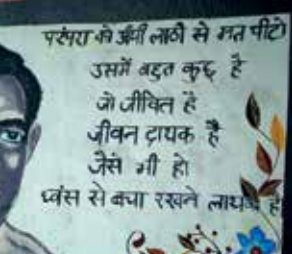 परंपरा को अंधी लाठी से मत पीटो
उसमें बहुत कुछ है
जो जीवित है
जीवन दायक है
जैसे भी हो
ध्वंस से बचा रखने लायक है